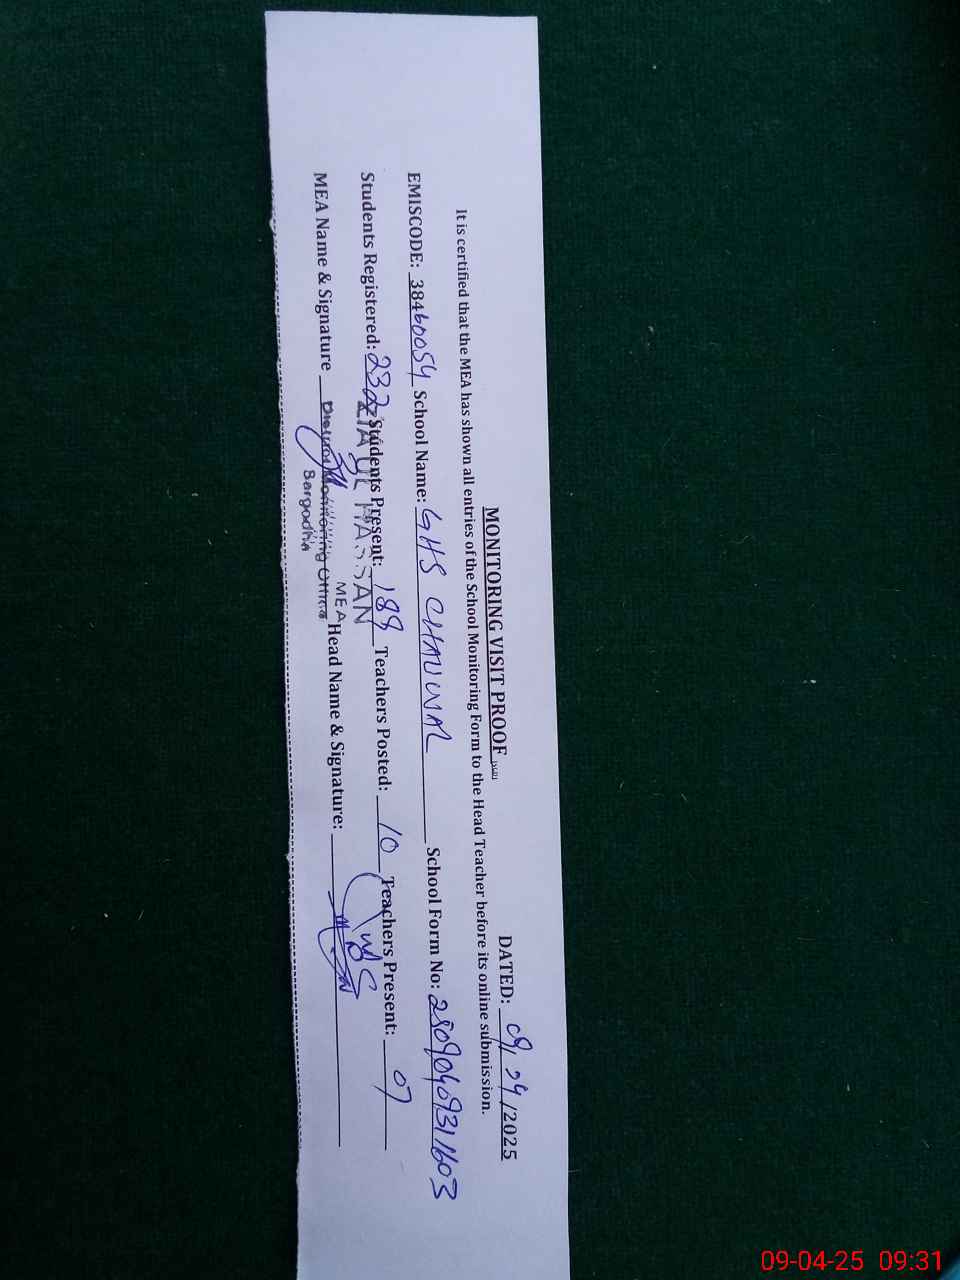 MONITORING VISIT PROOF
DATED: 09/04/2025
It is certified that the MEA has shown all entries of the School Monitoring Form to the Head Teacher before its online submission.
EMISCODE: 38460054 School Name: GHS CHAUWAL School Form No: 25090409311603
Students Registered: 232 Students Present: 188 Teachers Posted: 10 Teachers Present: 07
ZIA UL HASSAN
MEA
MEA Name & Signature Head Name & Signature:
Monitoring Office
Sargodha
09-04-25 09:31